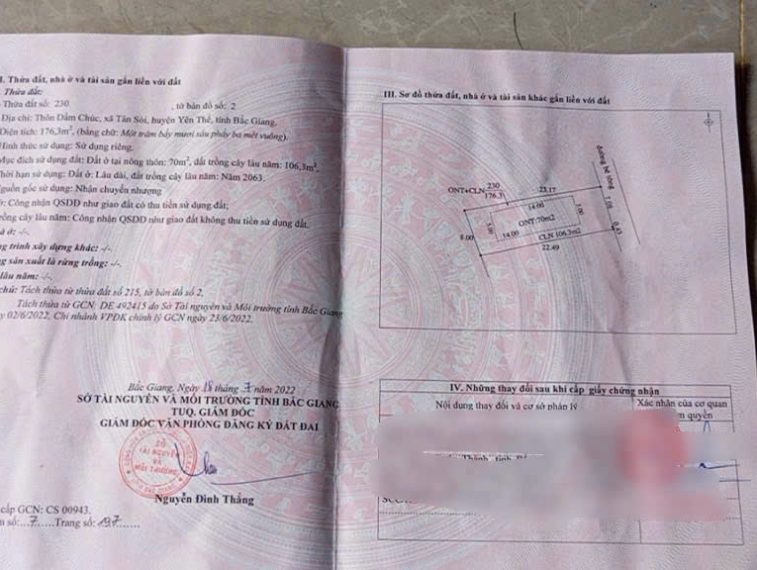 I. Thửa đất, nhà ở và tài sản gắn liền với đất
Thửa đất:
Thửa đất số: 230 , tờ bản đồ số: 2
Địa chỉ: Thôn Dầm Chúc, xã Tân Sỏi, huyện Yên Thế, tỉnh Bắc Giang.
Diện tích: 176,3m², (bằng chữ: Một trăm bảy mươi sáu phảy ba mét vuông).
Hình thức sử dụng: Sử dụng riêng.
Mục đích sử dụng đất: Đất ở tại nông thôn: 70m², đất trồng cây lâu năm: 106,3m².
Thời hạn sử dụng: Đất ở: Lâu dài, đất trồng cây lâu năm: Năm 2063.
Nguồn gốc sử dụng: Nhận chuyển nhượng
Công nhận QSDĐ như giao đất có thu tiền sử dụng đất;
trồng cây lâu năm: Công nhận QSDĐ như giao đất không thu tiền sử dụng đất.
ở: -/-.
trình xây dựng khác: -/-.
sản xuất là rừng trồng: -/-.
lâu năm: -/-.
chú: Tách thửa từ thửa đất số 215, tờ bản đồ số 2.
Tách thửa từ GCN: DE 492415 do Sở Tài nguyên và Môi trường tỉnh Bắc Giang
02/6/2022, Chi nhánh VPĐK chỉnh lý GCN ngày 23/6/2022.
Bắc Giang, Ngày 18 tháng 7 năm 2022
SỞ TÀI NGUYÊN VÀ MÔI TRƯỜNG TỈNH BẮC GIANG
TUQ. GIÁM ĐỐC
GIÁM ĐỐC VĂN PHÒNG ĐĂNG KÝ ĐẤT ĐAI
SỞ
TÀI NGUYÊN
VÀ
MÔI TRƯỜNG
Nguyễn Đình Thắng
cấp GCN: CS 00943.
số:...7.....Trang số: 197......
III. Sơ đồ thửa đất, nhà ở và tài sản khác gắn liền với đất
đường bê tông
ONT+CLN 230
176.3
23.17
7.08
0.43
14.00
5.00
ONT:70m2
5.00
14.00
CLN 106.3m2
8.00
22.49
IV. Những thay đổi sau khi cấp giấy chứng nhận
Nội dung thay đổi và cơ sở pháp lý
Xác nhận của cơ quan
quyền